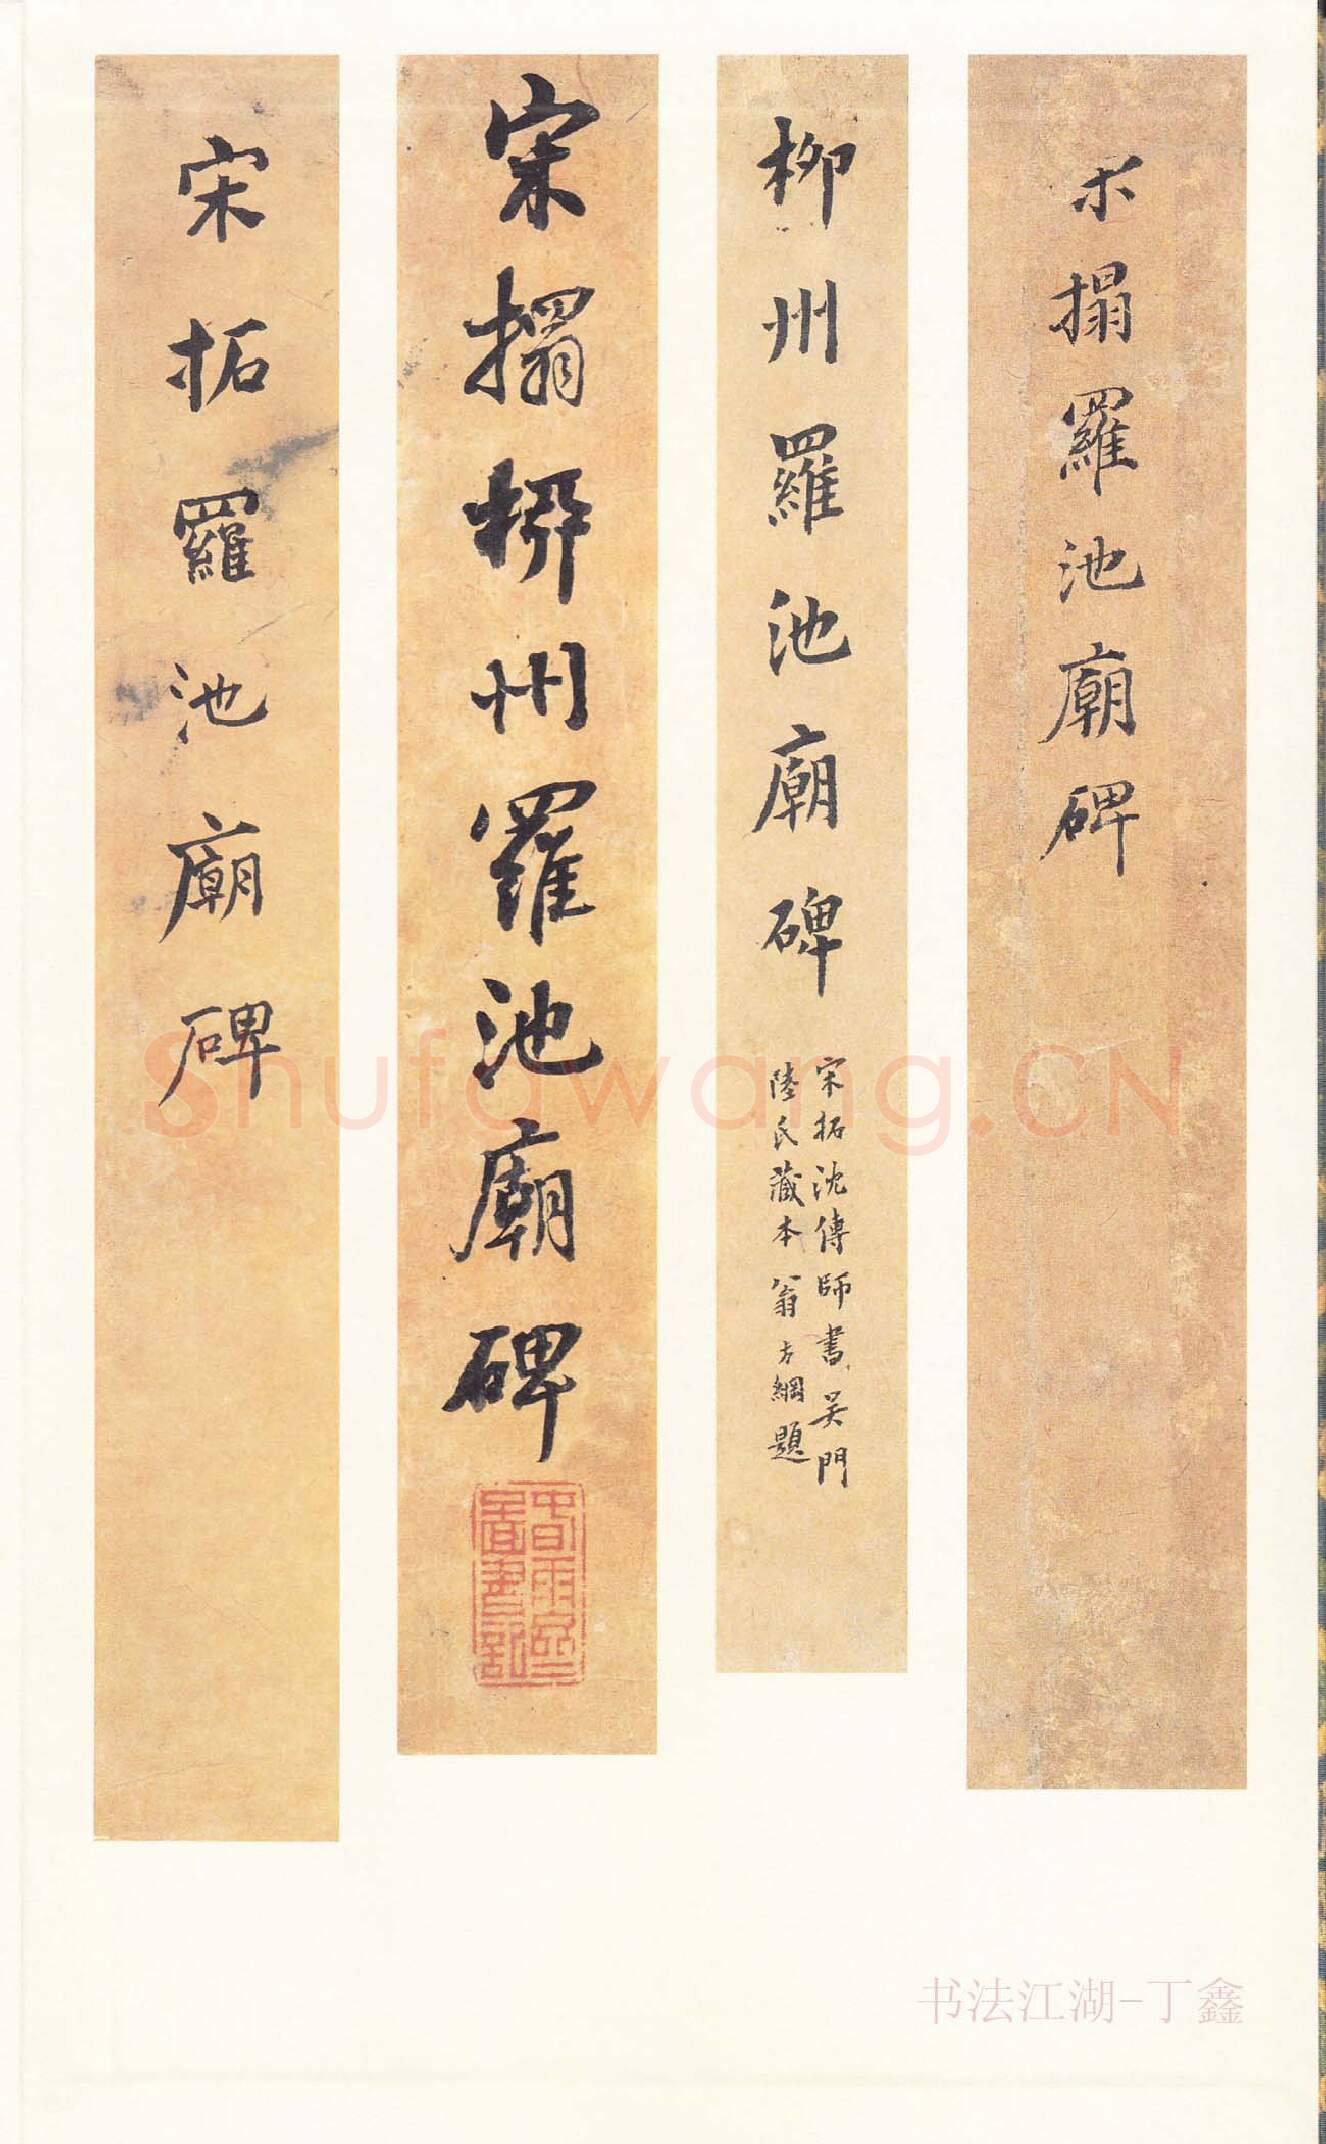 宋搨羅池廟碑
柳州羅池廟碑
宋拓沈傳師書吳門
陸氏藏本翁方綱題
宋搨柳州羅池廟碑
春雨樓
圖書記
宋拓羅池廟碑
Shufawang.CN
书法江湖-丁鑫